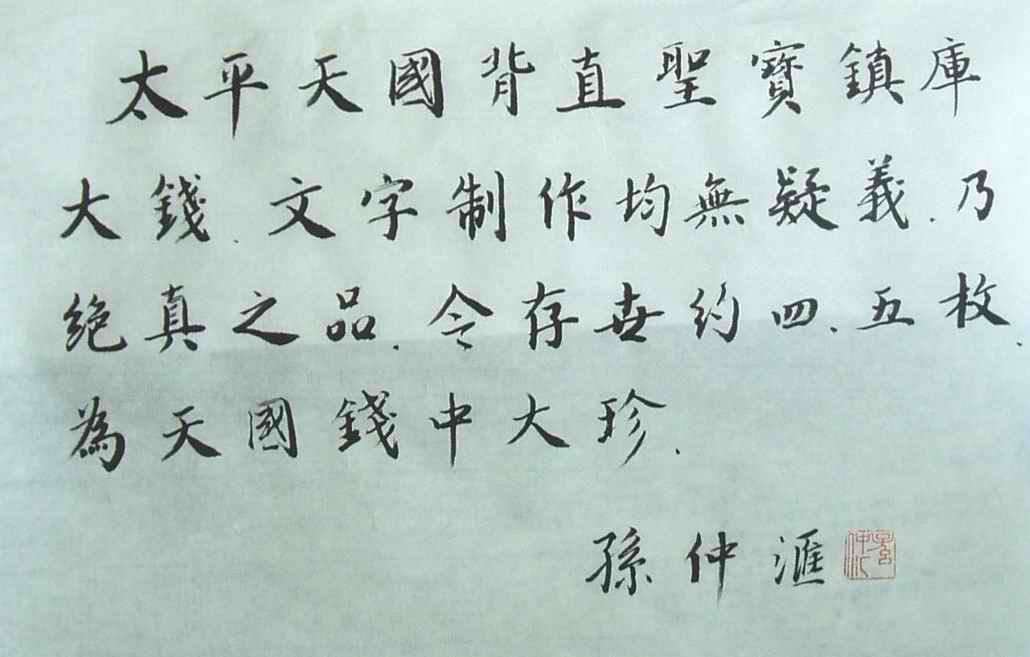 太平天國背直聖寶鎮庫
大錢.文字制作均無疑義.乃
绝真之品.令存世约四、五枚.
為天國錢中大珍.
孫仲滙